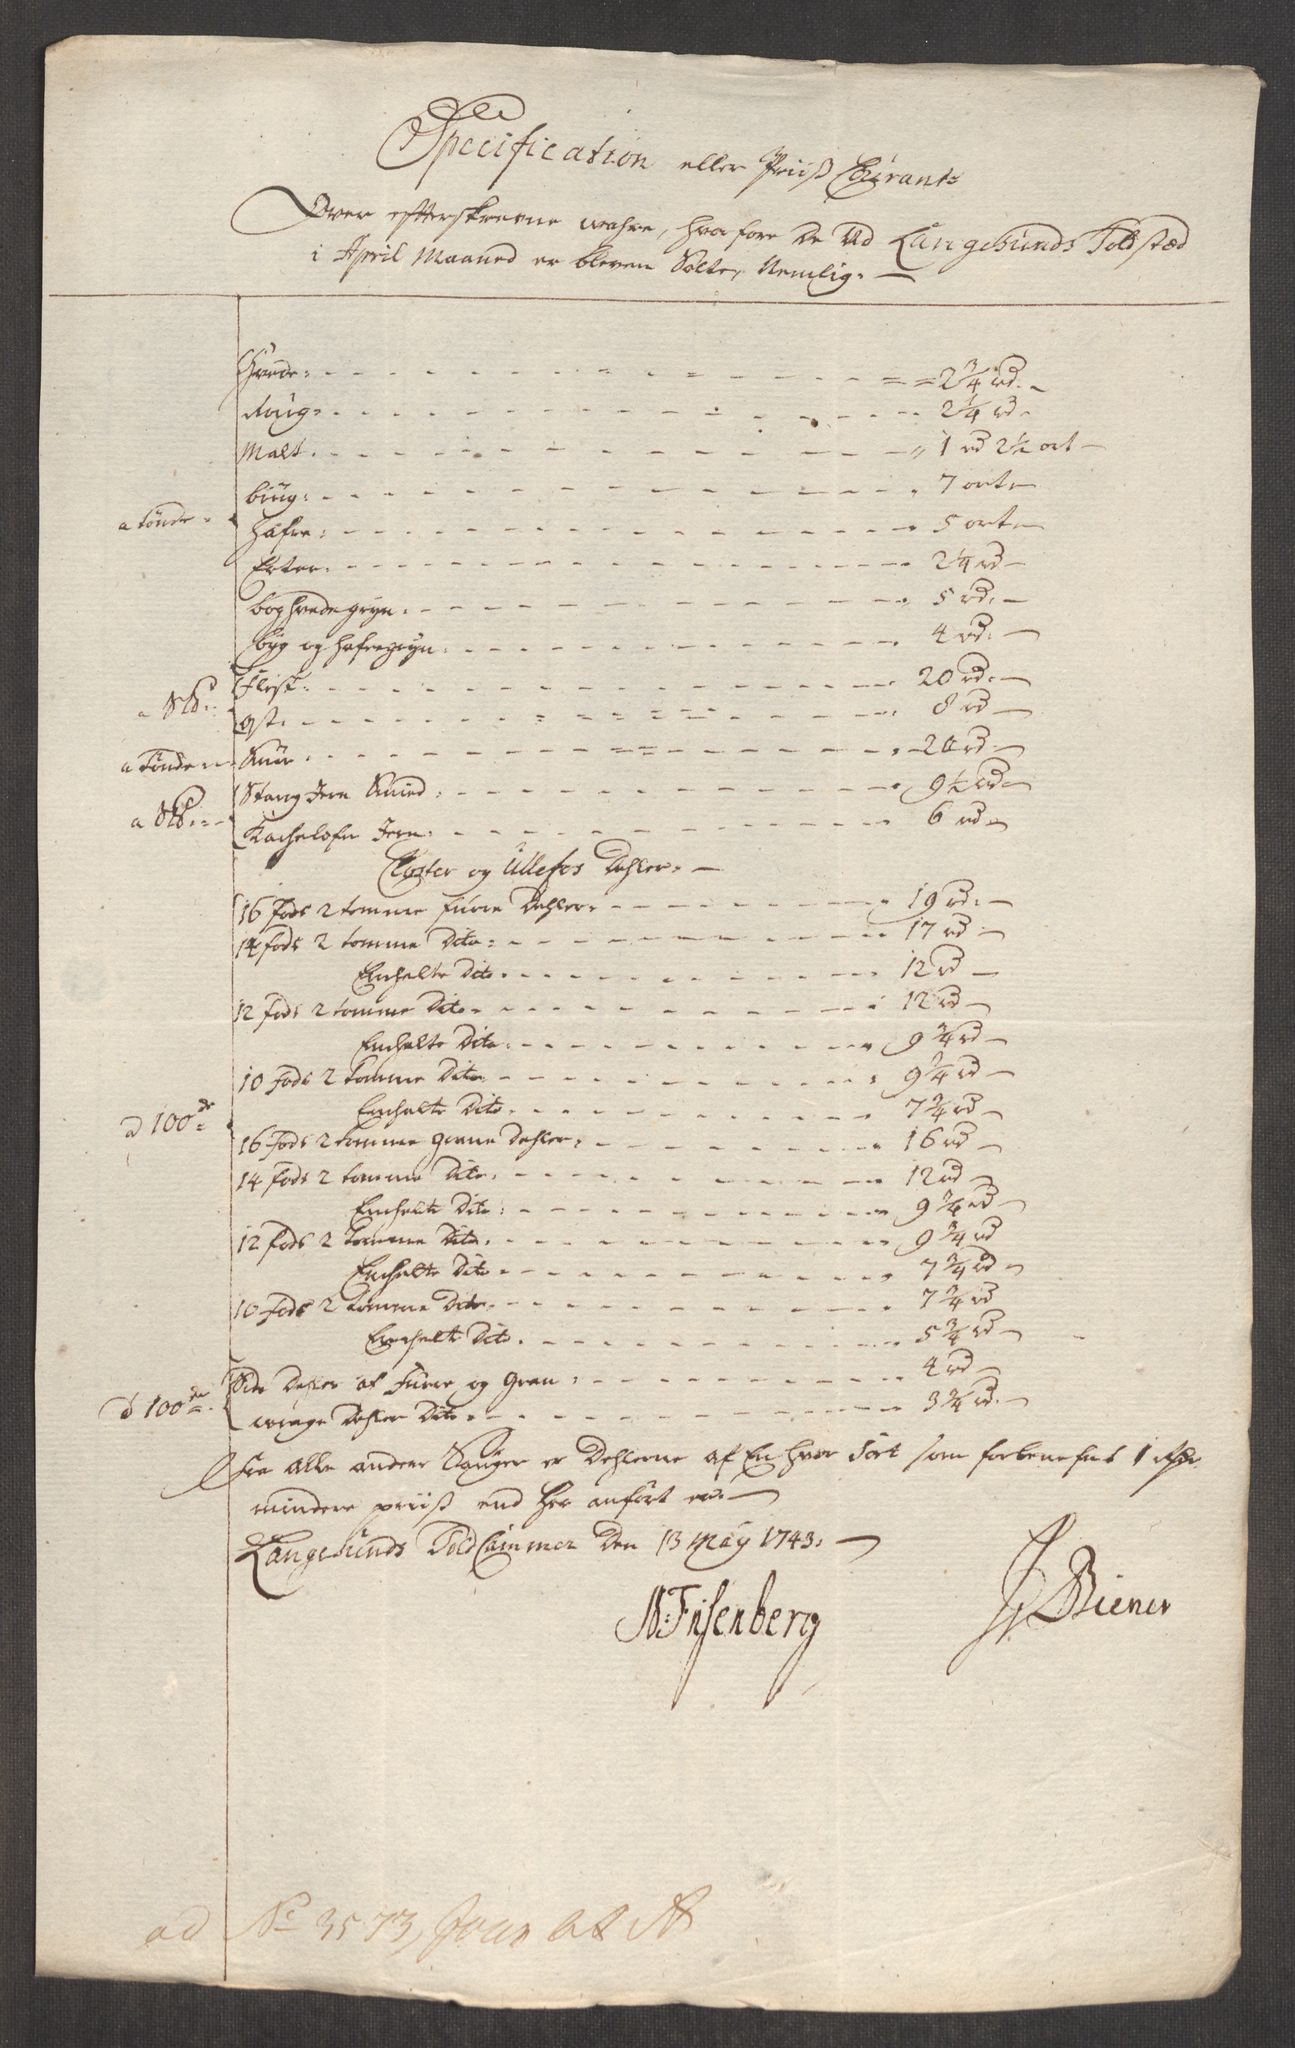 Specification eller Priiß Courant
Over efterskrevne wahre, hvorfore De Ved Langesunds Toldstæd
i April Maaned er bleven Solte, Nemlig.
Hvede 2 3/4 rd
Roug 2 1/4 rd
Malt 1 rd 2 1/2 ort
biug 7 ort
a tønde
hafre 5 ort
Erter 2 1/4 rd
boghvedegryn 5 rd
byg og hafregryn 4 rd
Flesk 20 rd
a Slb
ost 8 rd
a tønde Smör 20 rd
Stang Jern Smied 9 1/2 rd
a Slb
Kachelofn Jern 6 rd
Closter og Ullefos Dehler
16 fods 2 tomme furre Dehler 19 rd
14 fods 2 tomme Dito 17 rd
Enhalte Dito 12 rd
12 fods 2 tomme Dito 12 rd
Enhalte Dito 9 3/4 rd
10 fods 2 tomme Dito 9 3/4 rd
Enhalte Dito 7 3/4 rd
a 100de
16 fods 2 tomme grane Dehler 16 rd
14 fods 2 tomme Dito 12 rd
Enhalte Dito 9 3/4 rd
12 fods 2 tomme Dito 9 3/4 rd
Enhalte Dito 7 3/4 rd
10 fods 2 tomme Dito 7 3/4 rd
Enhalte Dito 5 3/4 rd
Side Dehler af Furre og Gran 4 rd
a 100de
wrage Dehler Dito 3 3/4 rd
Fra alle andere Sauger er Dehlerne af En hver Sort som forbenefnt 1 rd
mindere priiß end her anfört er
Langesunds Told Cammer Den 13 May 1743
Friisenberg
Biener
ad No 3573, Jour